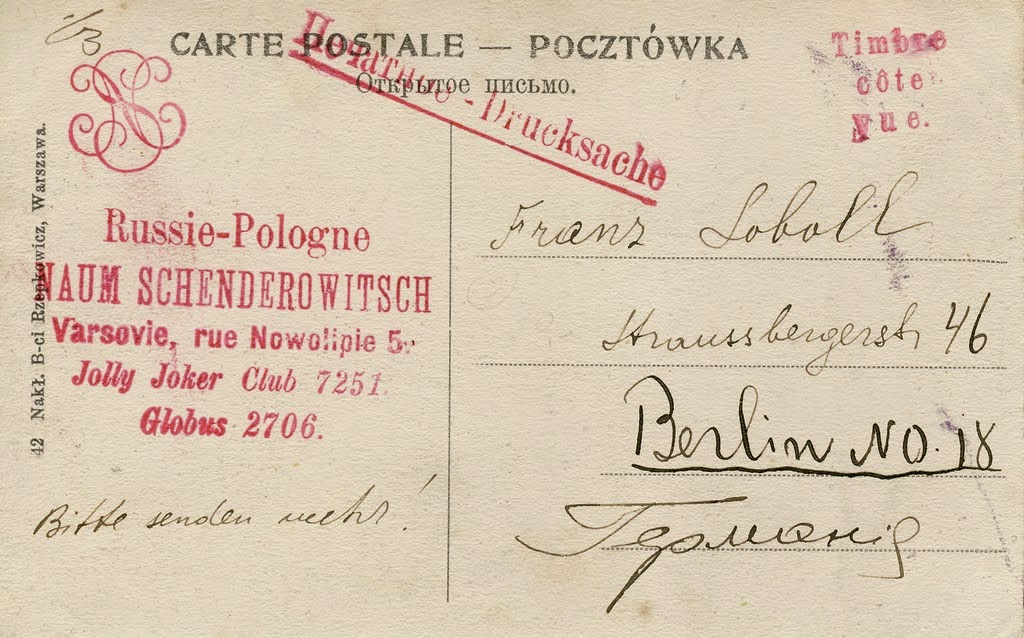 CARTE POSTALE — POCZTÓWKA
Открытое письмо.
Печатное - Drucksache
Timbre
côte
vue.
42 Nakł. B-ci Rzepkowicz, Warszawa.
Russie-Pologne
NAUM SCHENDEROWITSCH
Varsovie, rue Nowolipie 5.
Jolly Joker Club 7251.
Globus 2706.
Bitte senden mehr!
Franz Loboll
Straussbergerstr 46
Berlin NO. 18
Германія